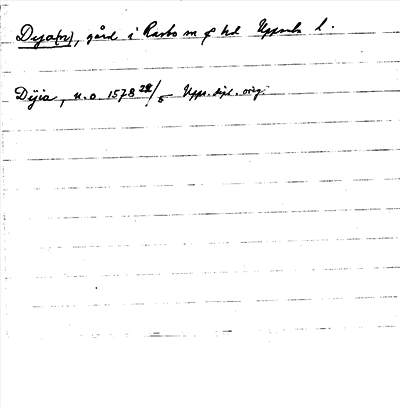 Dya(n), gård i Rasbo sn o hd Uppsala l.
Dijia, u.o. 1578 28/5 Upps. dipl. orig.